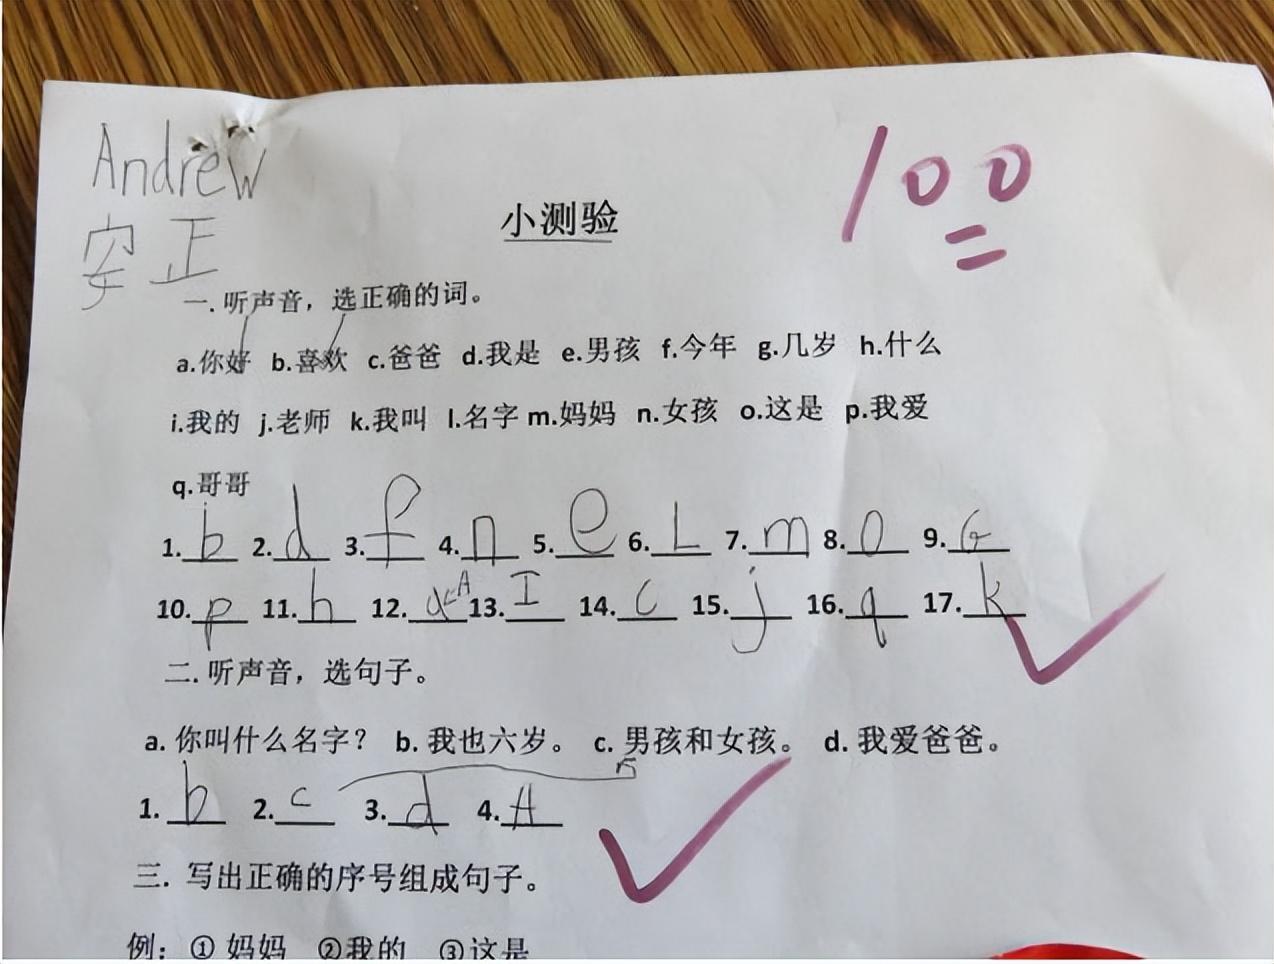 Andrew
安正
100
小测验
一. 听声音，选正确的词。
a.你好 b.喜欢 c.爸爸 d.我是 e.男孩 f.今年 g.几岁 h.什么
i.我的 j.老师 k.我叫 l.名字 m.妈妈 n.女孩 o.这是 p.我爱
q.哥哥
1. b 2. d 3. f 4. n 5. e 6. L 7. m 8. o 9. G
10. p 11. h 12. A 13. I 14. c 15. j 16. q 17. k
二. 听声音，选句子。
a. 你叫什么名字？ b. 我也六岁。 c. 男孩和女孩。 d. 我爱爸爸。
1. b 2. c 3. d 4. A
三. 写出正确的序号组成句子。
例：① 妈妈 ②我的 ③这是